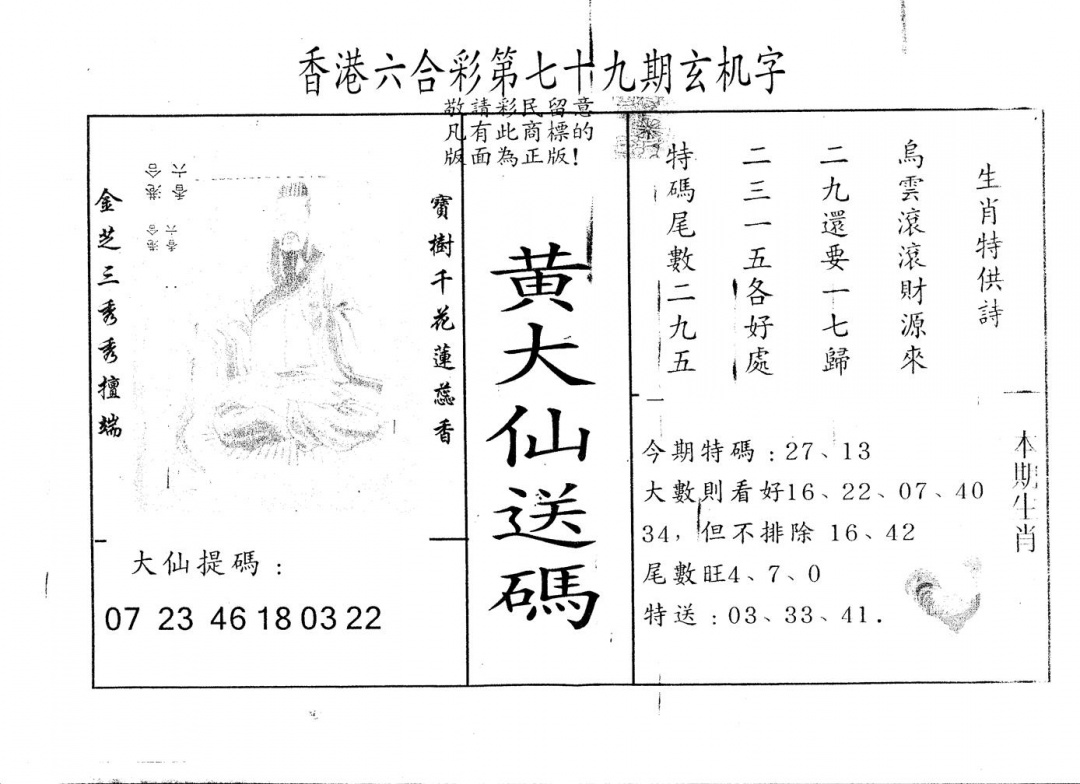 香港六合彩第七十九期玄机字
敬請彩民留意
凡有此商標的
版面為正版!
金芝三秀秀擅端
寶樹千花蓮蕊香
香六
港合
香六
港合
大仙提碼：
07 23 46 18 03 22
黃大仙送碼
生肖特供詩
烏雲滾滾財源來
二九還要一七歸
二三一五各好處
特碼尾數二九五
今期特碼：27、13
大數則看好16、22、07、40
34，但不排除 16、42
尾數旺4、7、0
特送：03、33、41.
本期生肖